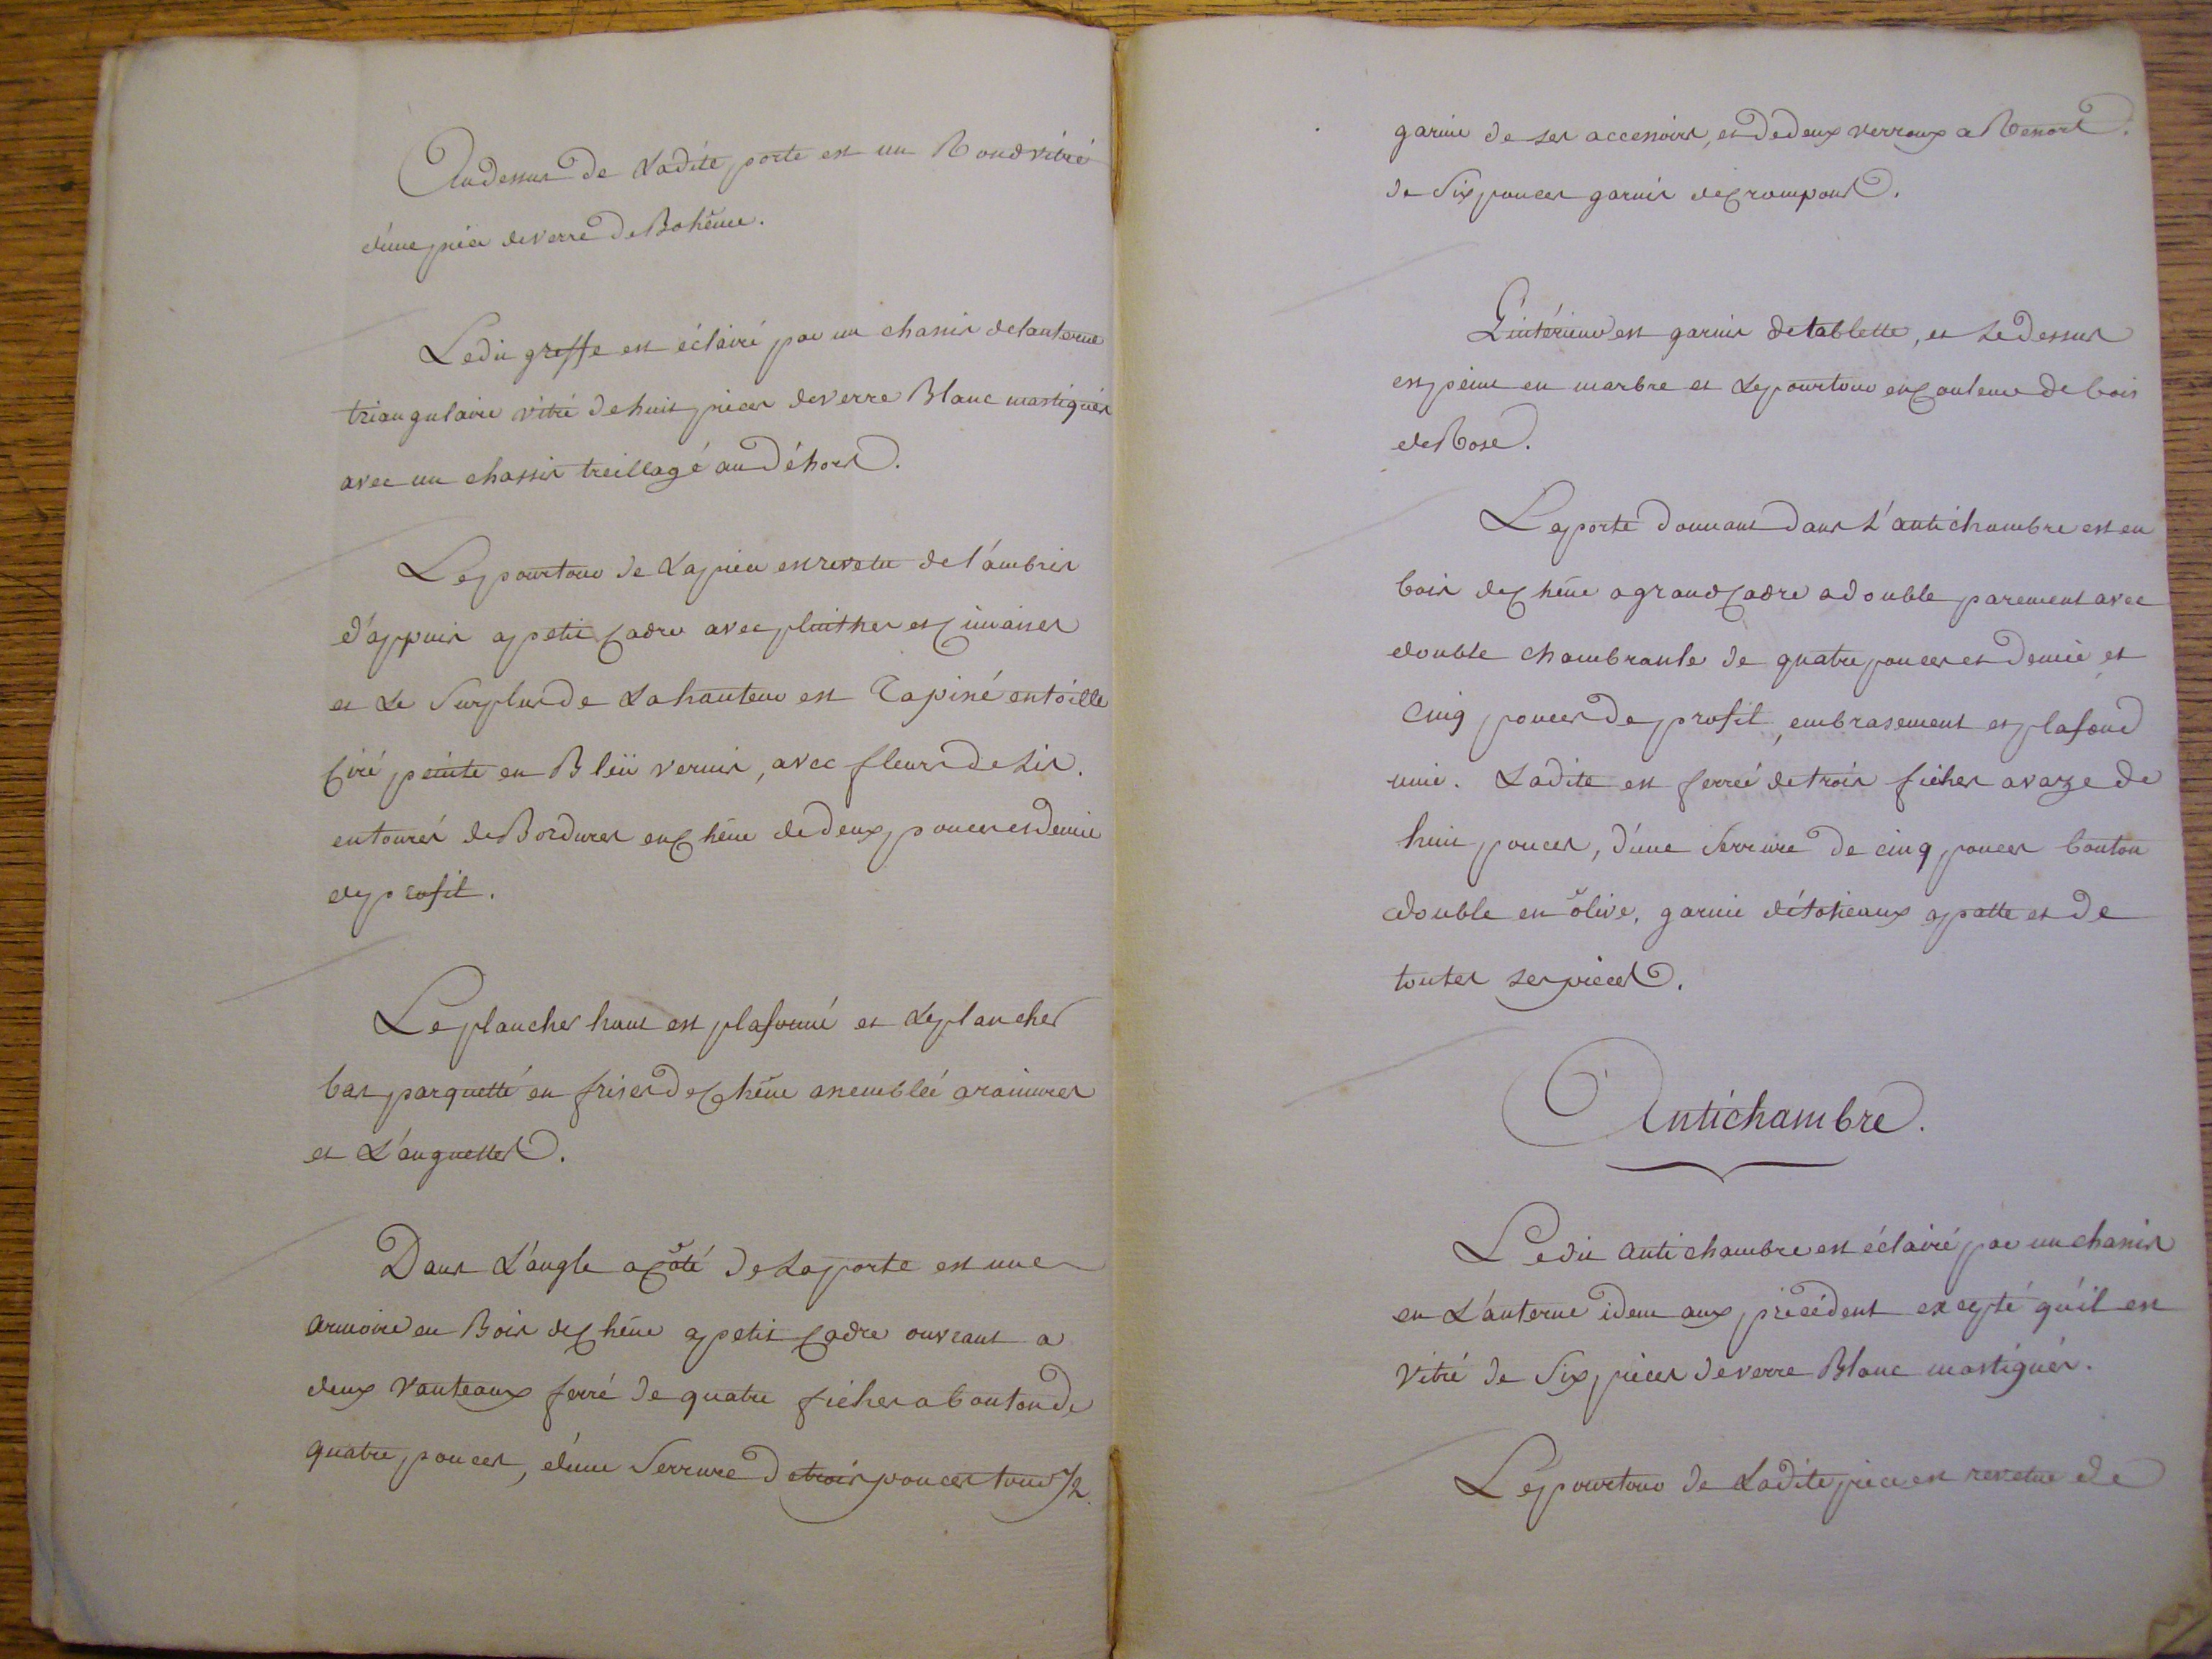 Audessus de Ladite porte est un Rond vitré
d'une piéce de verre de Bohëme.
Ledit greffe est éclairé par un chassis de lanterne
triangulaire vitré de huit piéces de verre Blanc mastiqués
avec un chassis treillagé au déhors.
Le pourtour de La piece est revetu de l'ambris
d'appuis a petit Cadre avec plinthes et Cimaises
et Le Surplus de La hauteur est Tapissé en toille
Ciré peinte en Bleü vernis, avec fleurs de Lis.
entourés de Bordures en Chêne de deux pouces et demie
de profil.
Le plancher haut est plafonné et Le plancher
bas parquetté en frises de Chëne assemblée a rainures
et L'anguettes.
Dans L'angle a Coté de La porte est une
armoire en Bois de Chêne a petit Cadre ouvrant a
deux Vanteaux ferré de quatre fiches a bouton de
quatre pouces, d'une Serrure de trois pouces tour 1/2.
garnie de ses accessoires, et de deux verroux a Ressort
de Six pouces garnis de Crampons.
L'intérieur est garnis de tablette, et Le dessus
est peint en marbre et Le pourtour en Couleur de bois
de Rose.
La porte donnant dans L'antichambre est en
bois de Chêne a grand Cadre a double parement avec
double chambranle de quatre pouces et demie et
cinq pouces de profil, embrasement et plafond
unie. Ladite est ferrée de trois fiches a vaze de
huit pouces, d'une Serrure de cinq pouces bouton
double en olive, garnie d'étoteaux a patte et de
toutes ses pieces.
Antichambre.
Ledit antichambre est éclairé par un chassis
en L'anterne idem aux précédent excepté qu'il est
vitré de Six piéces de verre Blanc mastiqués.
Le pourtour de Ladite piece est revetue de